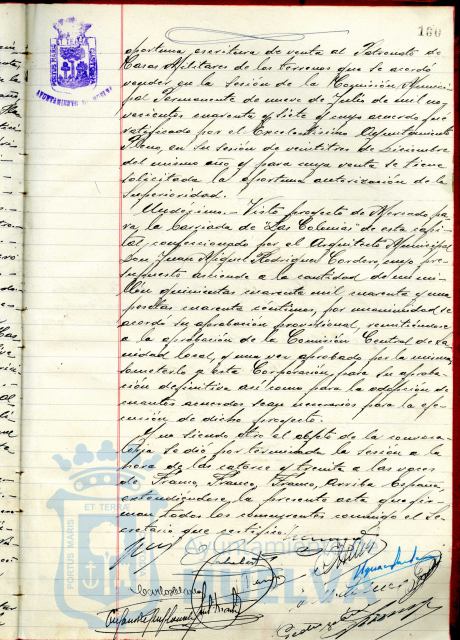 180
AYUNTAMIENTO DE HUELVA
oportuna escritura de venta al Patronato de
Casas Militares de los terrenos que se acordó
vender en la sesión de la Comisión Munici-
pal Permanente de nueve de Julio de mil no-
vecientos cuarenta y siete y cuyo acuerdo fué
ratificado por el Excelentísimo Ayuntamiento
Pleno, en su sesión de veintitres de Diciembre
del mismo año, y para cuya venta se tiene
solicitada la oportuna autorización de la
Superioridad.
Undécimo.- Visto proyecto de Mercado pa-
ra, la barriada de "Las Colonias" de esta capi-
tal, confeccionado por el Arquitecto Municipal
Don Juan Miguel Rodríguez Cordero, cuyo pre-
supuesto asciende a la cantidad de un mi-
llón quinientas cuarenta mil cuarenta y una
pesetas cuarenta céntimos, por unanimidad se
acordó su aprobación provisional, remitiéndose
a la aprobación de la Comisión Central de Sa-
nidad local, y una vez aprobado por la misma,
someterlo a esta Corporación, para su aproba-
ción definitiva así como para la adopción de
cuantos acuerdos sean necesarios para la eje-
cución de dicho proyecto.
Y no siendo otro el objeto de la convoca-
toria se dió por terminada la sesión a la
hora de las catorce y treinta a las voces
de Franco, Franco, Franco, Arriba España,
extendiéndose, la presente acta que fir-
man todos los concurrentes conmigo el Se-
cretario que certifico.
Ayuntamiento de
HUELVA
PORTUS MARIS
ET TERRAE